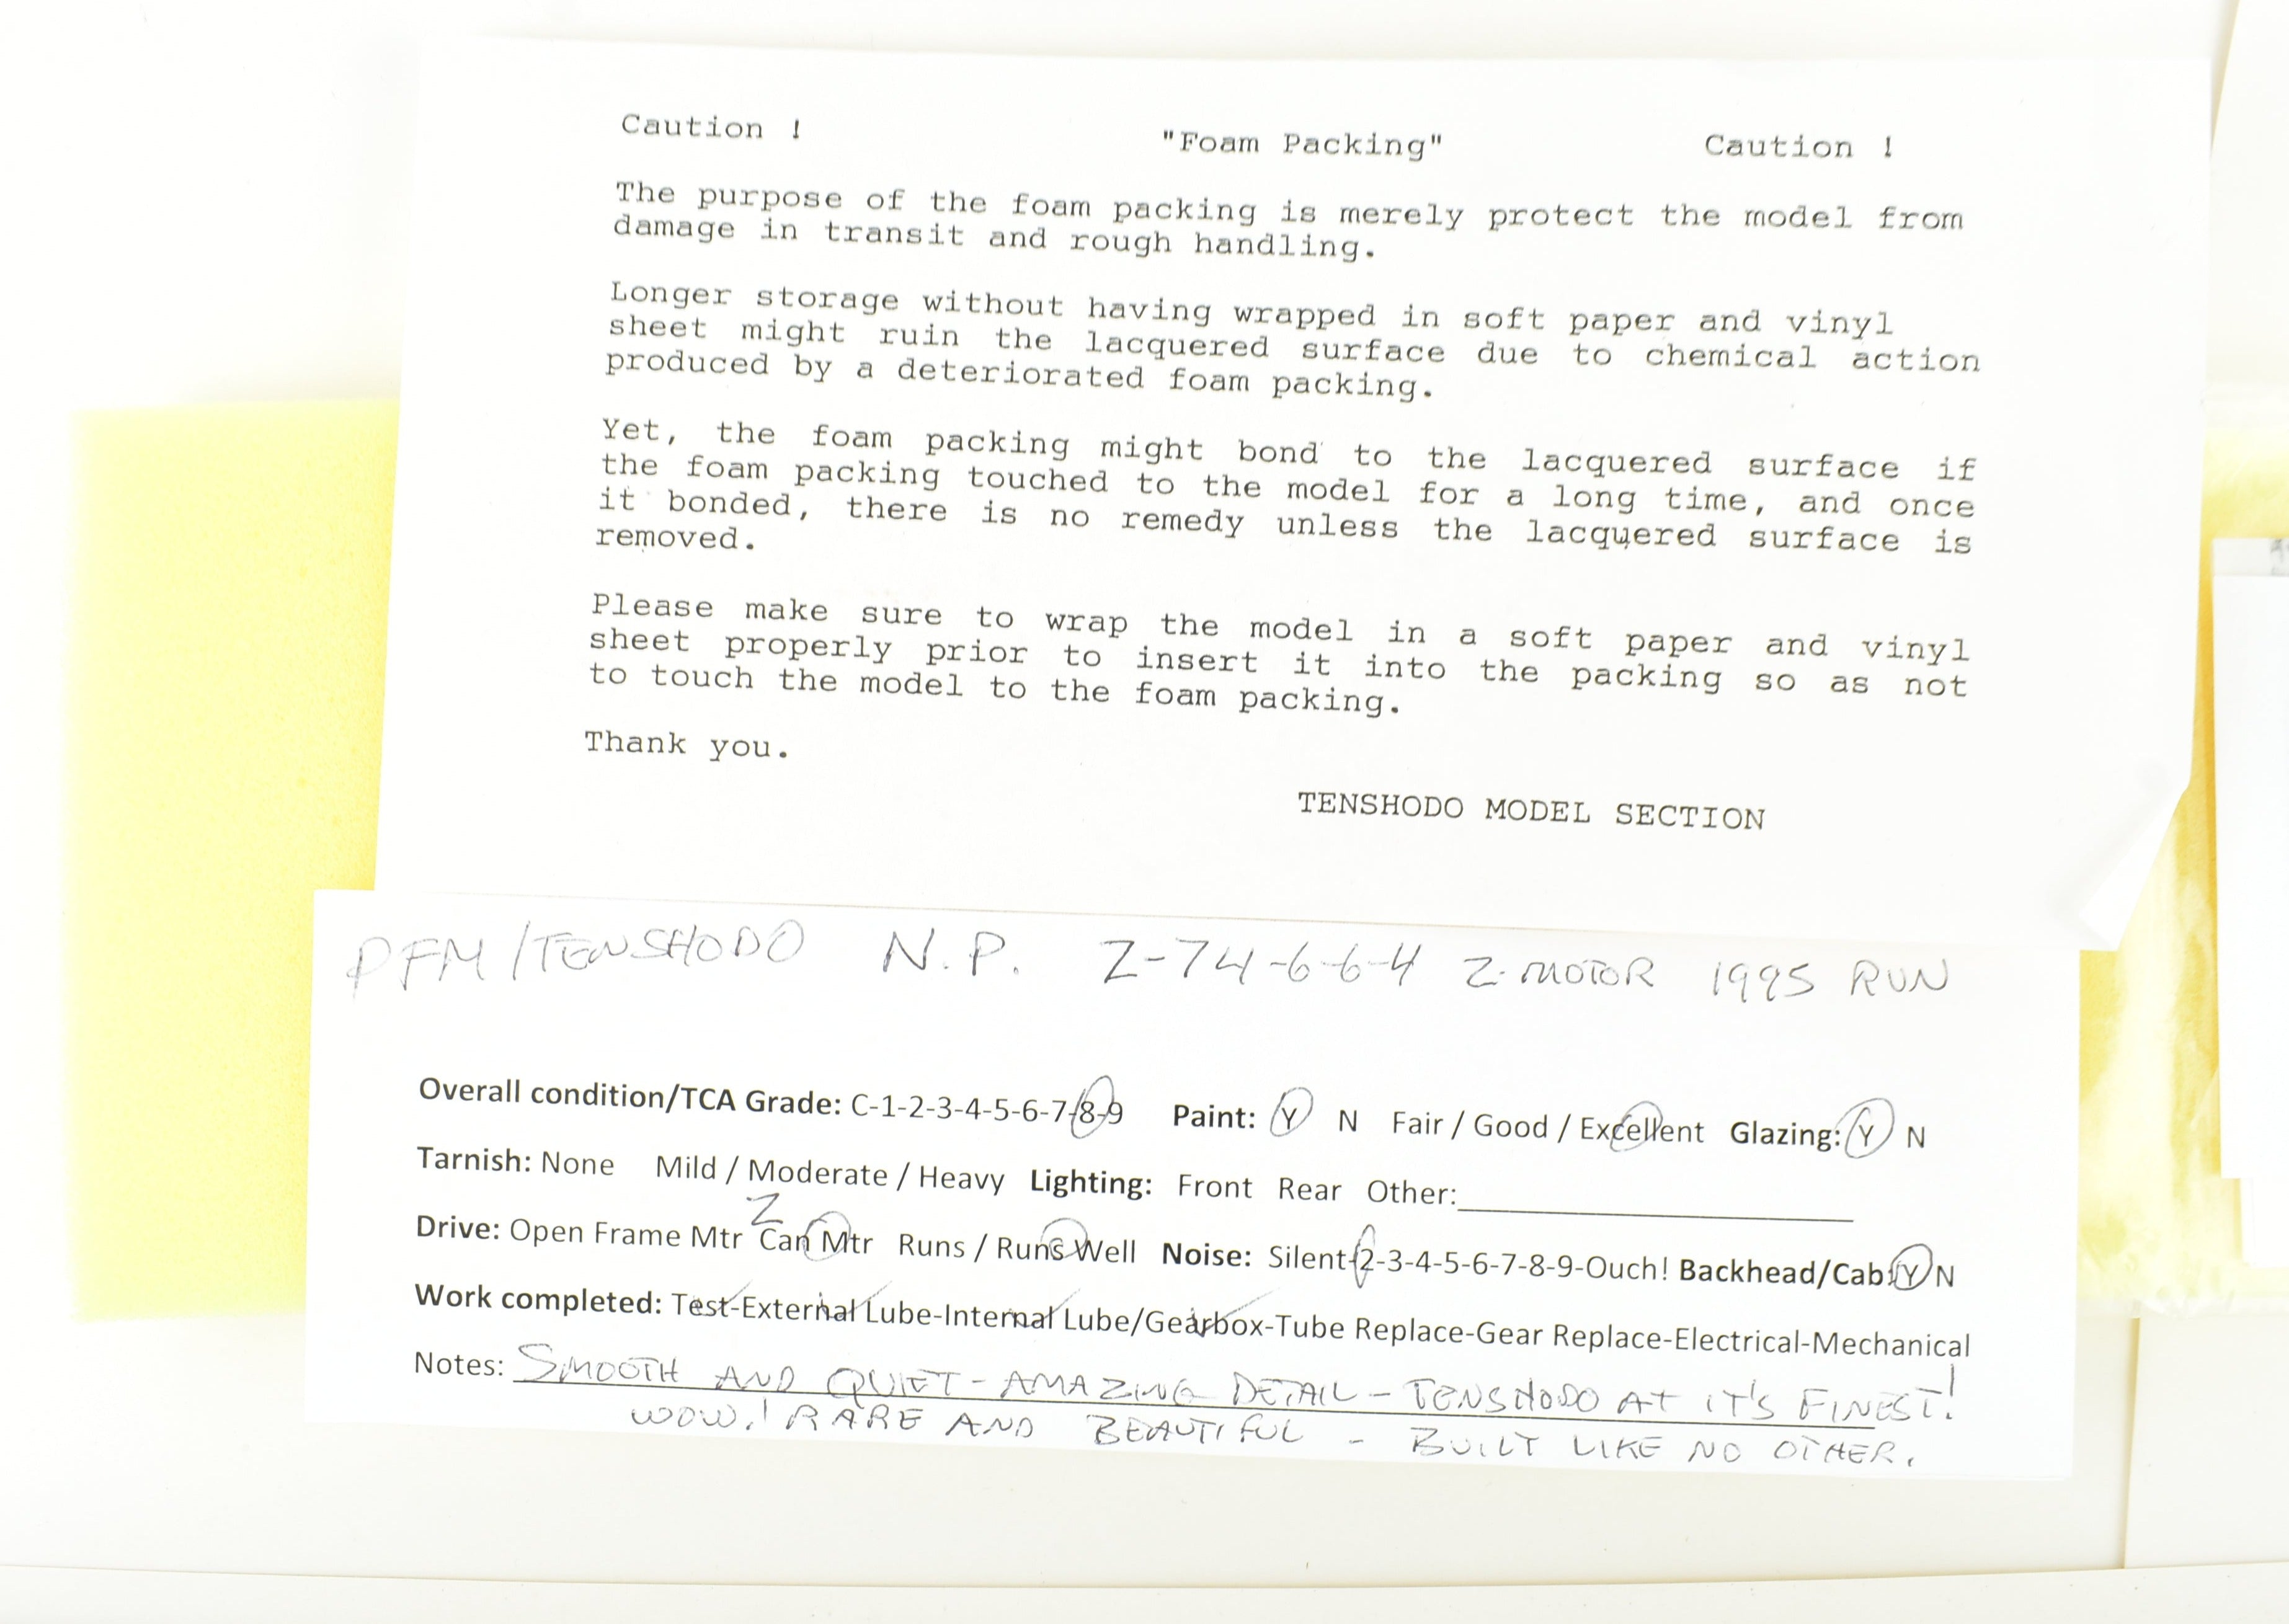 Caution ! "Foam Packing" Caution !
The purpose of the foam packing is merely protect the model from
damage in transit and rough handling.
Longer storage without having wrapped in soft paper and vinyl
sheet might ruin the lacquered surface due to chemical action
produced by a deteriorated foam packing.
Yet, the foam packing might bond to the lacquered surface if
the foam packing touched to the model for a long time, and once
it bonded, there is no remedy unless the lacquered surface is
removed.
Please make sure to wrap the model in a soft paper and vinyl
sheet properly prior to insert it into the packing so as not
to touch the model to the foam packing.
Thank you.
TENSHODO MODEL SECTION
PFM/TENSHODO N.P. Z-74-6-6-4 Z-MOTOR 1995 RUN
Overall condition/TCA Grade: C-1-2-3-4-5-6-7-8-9 Paint: Y N Fair / Good / Excellent Glazing: Y N
Tarnish: None Mild / Moderate / Heavy Lighting: Front Rear Other:
Z
Drive: Open Frame Mtr Can Mtr Runs / Runs Well Noise: Silent-2-3-4-5-6-7-8-9-Ouch! Backhead/Cab: Y N
Work completed: Test-External Lube-Internal Lube/Gearbox-Tube Replace-Gear Replace-Electrical-Mechanical
Notes: SMOOTH AND QUIET - AMAZING DETAIL - TENSHODO AT IT'S FINEST!
WOW! RARE AND BEAUTIFUL - BUILT LIKE NO OTHER.